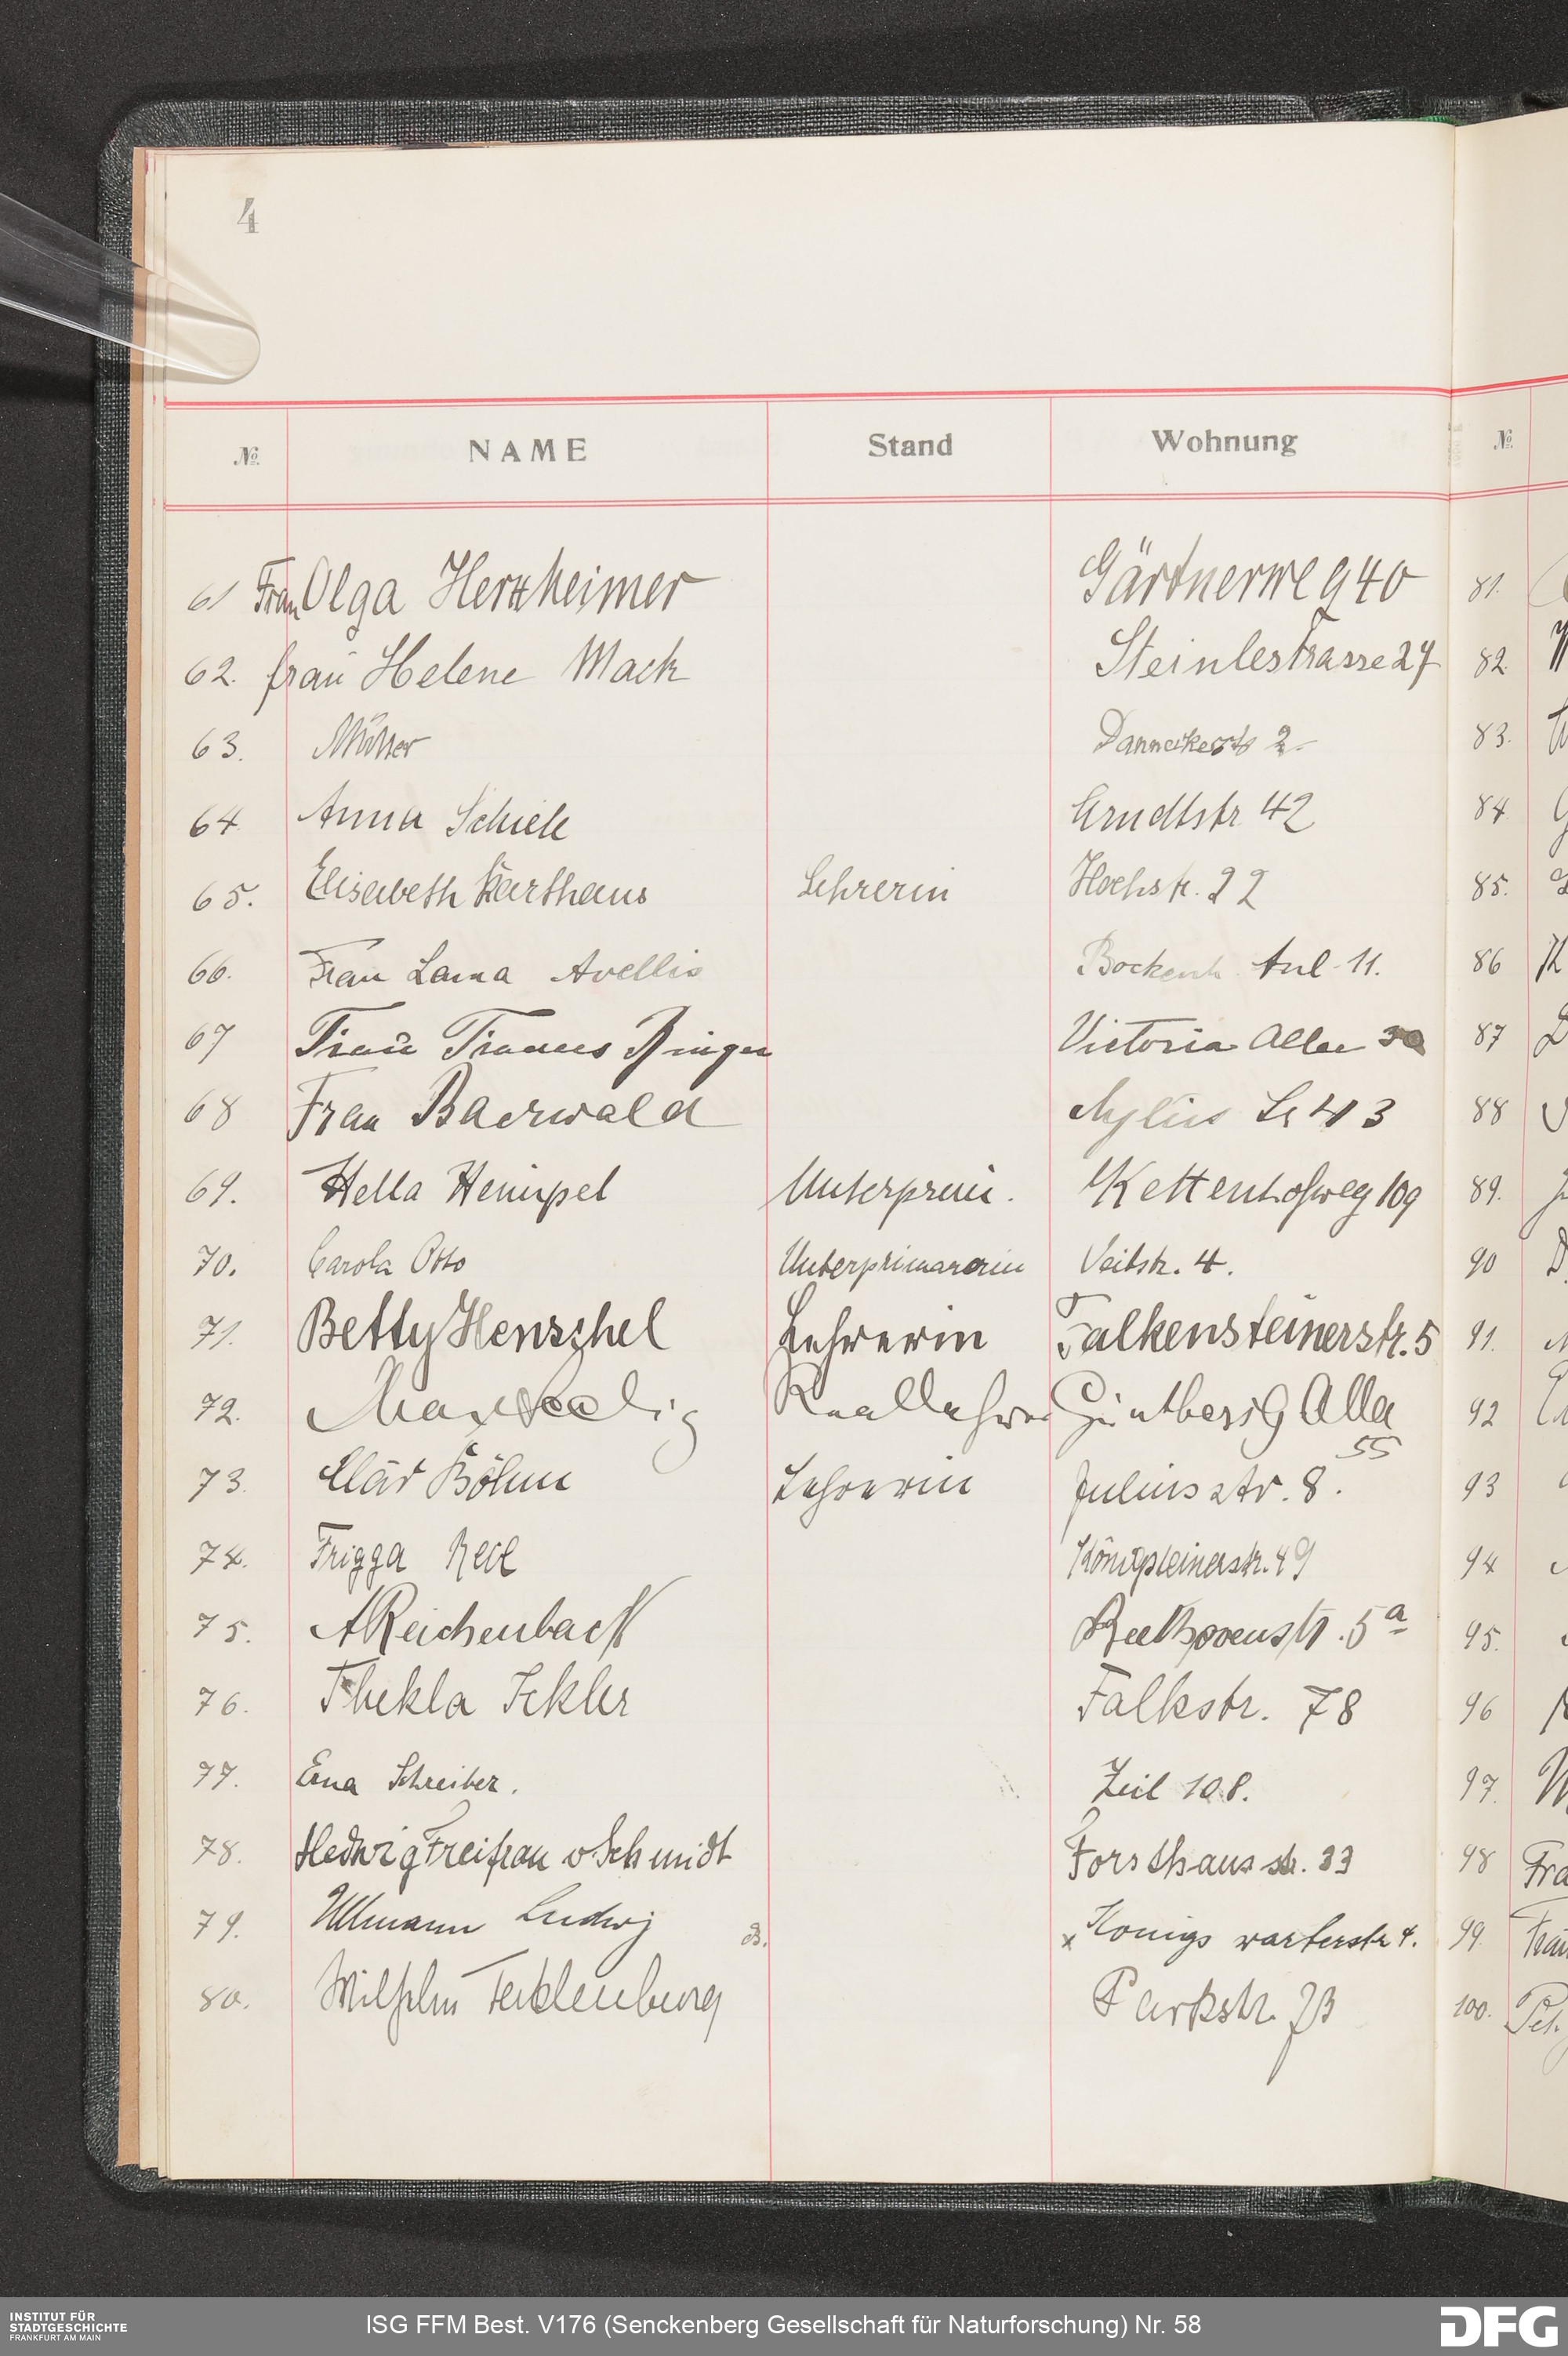 4
№ NAME Stand Wohnung №
61 Frau Olga Herxheimer Gärtnerweg 40 81.
62. Frau Helene Mack Steinlestrasse 27 82.
63. Müller Danneckerstr 2 83.
64. Anna Schiele Arndtstr 42 84
65. Elisabeth Karthaus Lehrerin Hochstr. 22 85.
66. Frau Laura Avellis Bockenh. Anl. 11. 86
67 Frau Victoria Allee 87
68 Frau Baerwald Mylius Str 43 88
69. Hella Hempel Unterprim. Kettenhofweg 109 89.
70. Carola Otto Unterprimanerin Veitstr. 4. 90
71. Betty Henschel Lehrerin Falkensteinerstr. 5 91.
72. Max Seelig Reallehrer Günthersb Allee 92
55
73. Clär Böhm Lehrerin Juliusstr. 8. 93
74. Frigga Königsteinerstr. 49 94
75. A Reichenbach Beethovenstr. 5a 95.
76. Thekla Sekler Falkstr. 78 96
77. Erna Schreiber. Zeil 108. 97.
78. Hedwig Freifrau v Schmidt Forsthausstr. 33 98 Fra
79. Ullmann Ludwig B. x Königswarterstr 4. 99.
80. Wilhelm Tecklenburg Parkstr. 100.
INSTITUT FÜR
STADTGESCHICHTE
FRANKFURT AM MAIN
ISG FFM Best. V176 (Senckenberg Gesellschaft für Naturforschung) Nr. 58
DFG